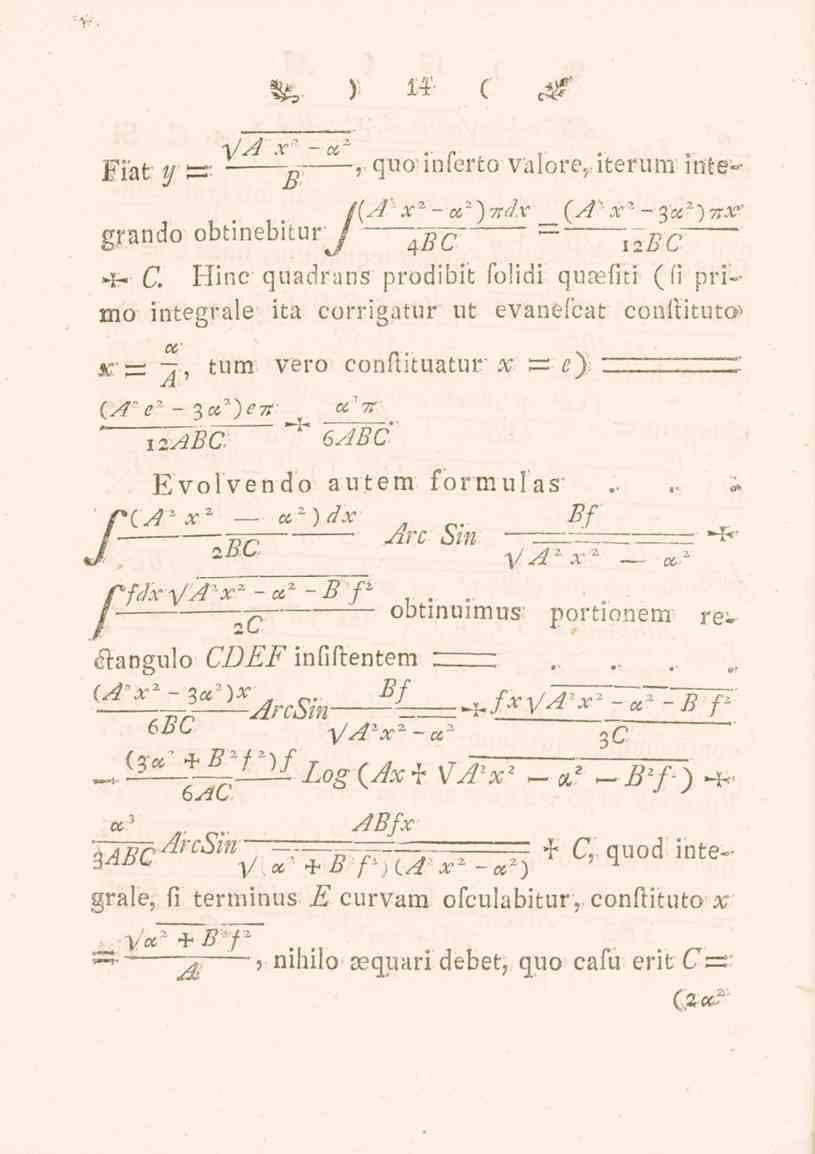 ) 14 (
Fiat y = √(A²x² - α²)/B, quo inſerto valore, iterum inte-
grando obtinebitur ∫(A²x² - α²)πdx/4BC = (A²x² - 3α²)πx/12BC
+ C. Hinc quadrans prodibit ſolidi quæſiti (ſi pri-
mo integrale ita corrigatur ut evaneſcat conſtituto
x = α/A, tum vero conſtituatur x = e) =
(A²e² - 3α²)eπ/12ABC + α³π/6ABC.
Evolvendo autem formulas . . .
∫(A²x² — α²)dx/2BC Arc Sin Bf/√(A²x² — α²) +
∫fdx√(A²x² - α² - B²f²)/2C obtinuimus portionem re-
ctangulo CDEF inſiſtentem = . . . .
(A²x² - 3α²)x/6BC ArcSin Bf/√(A²x² - α²) + fx√(A²x² - α² - B²f²)/3C
— (3α² + B²f²)f/6AC Log (Ax + √(A²x² - α² - B²f²)) +
α³/3ABC ArcSin ABfx/√(α² + B²f²)(A²x² - α²) + C, quod inte-
grale, ſi terminus E curvam oſculabitur, conſtituto x
= √(α² + B²f²)/A, nihilo æquari debet, quo caſu erit C =
(2α²